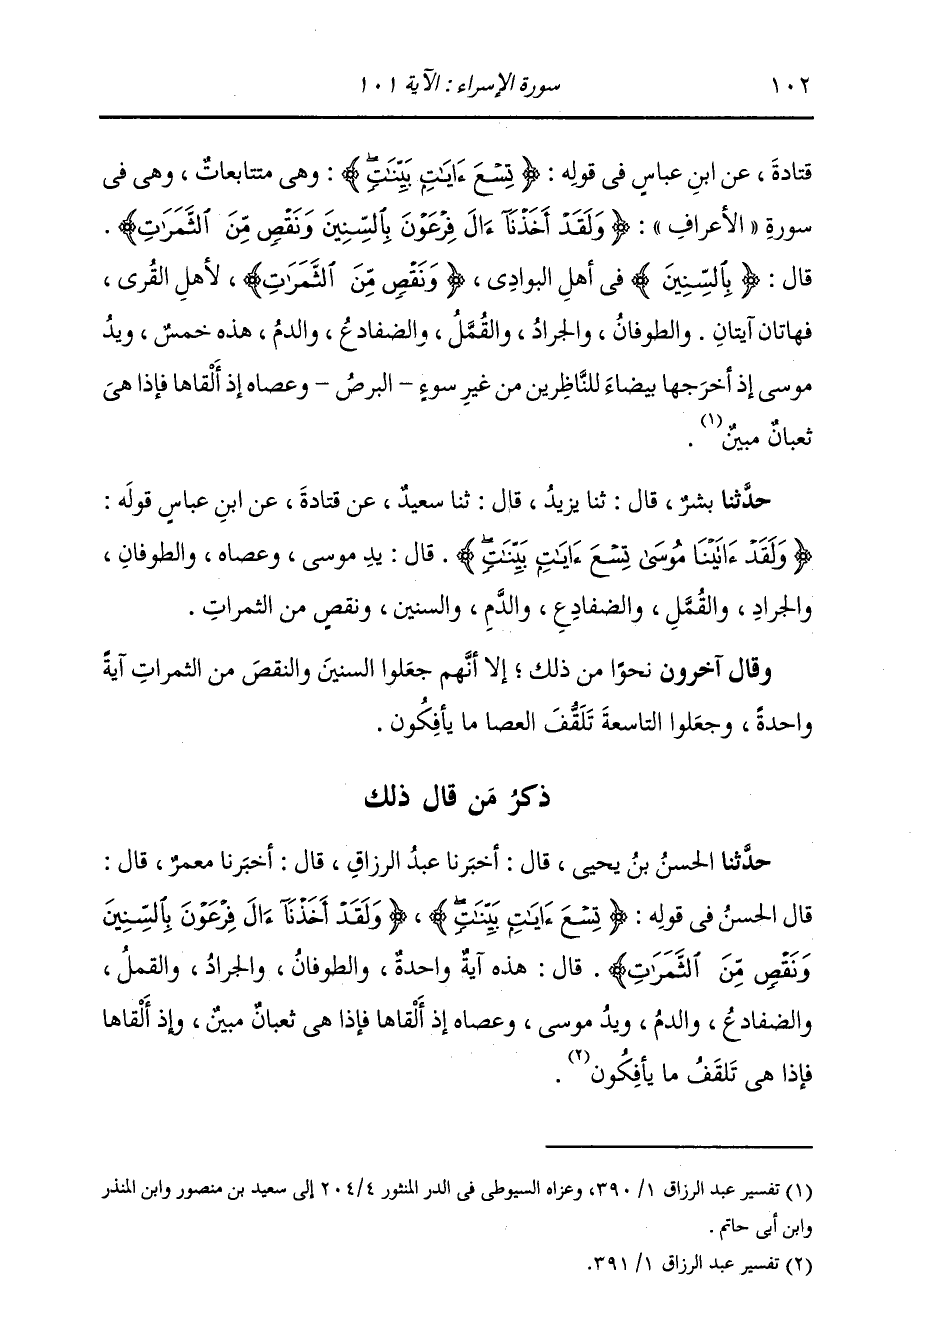 ١٠٢ سورة الإسراء : الآية ١٠١
قتادةَ ، عن ابنِ عباسٍ فى قولِه : ﴿ تِسْعَ ءَايَٰتٍۭ بَيِّنَٰتٍۖ ﴾ : وهى متتابعاتٌ ، وهى فى
سورةِ « الأعرافِ » : ﴿ وَلَقَدْ أَخَذْنَآ ءَالَ فِرْعَوْنَ بِٱلسِّنِينَ وَنَقْصٍ مِّنَ ٱلثَّمَرَٰتِ﴾ .
قال : ﴿ بِٱلسِّنِينَ ﴾ فى أهلِ البوادِى ، ﴿ وَنَقْصٍ مِّنَ ٱلثَّمَرَٰتِ﴾ ، لأهلِ القُرى ،
فهاتان آيتانِ . والطوفانُ ، والجرادُ ، والقُمَّلُ ، والضفادعُ ، والدمُ ، هذه خمسٌ ، ويدُ
موسى إذ أخرَجها بيضاءَ للنَّاظِرين من غيرِ سوءٍ - البرصُ - وعصاه إذ أَلْقاها فإذا هىَ
ثعبانٌ مبينٌ(١) .
حدَّثنا بشرٌ ، قال : ثنا يزيدُ ، قال : ثنا سعيدٌ ، عن قتادةَ ، عن ابنِ عباسٍ قولَه :
﴿ وَلَقَدْ ءَاتَيْنَا مُوسَىٰ تِسْعَ ءَايَٰتٍۭ بَيِّنَٰتٍۖ ﴾ . قال : يدِ موسى ، وعصاه ، والطوفانِ ،
والجرادِ ، والقُمَّلِ ، والضفادِعِ ، والدَّمِ ، والسنين ، ونقصٍ من الثمراتِ .
وقال آخرون نحوًا من ذلك ؛ إلا أنَّهم جعَلوا السنينَ والنقصَ من الثمراتِ آيةً
واحدةً ، وجعَلوا التاسعةَ تَلَقُّفَ العصا ما يأفِكُون .
ذكرُ مَن قال ذلك
حدَّثنا الحسنُ بنُ يحيى ، قال : أخبَرنا عبدُ الرزاقِ ، قال : أخبَرنا معمرٌ ، قال :
قال الحسنُ فى قولِه : ﴿ تِسْعَ ءَايَٰتٍۭ بَيِّنَٰتٍۖ ﴾ ، ﴿ وَلَقَدْ أَخَذْنَآ ءَالَ فِرْعَوْنَ بِٱلسِّنِينَ
وَنَقْصٍ مِّنَ ٱلثَّمَرَٰتِ﴾ . قال : هذه آيةٌ واحدةٌ ، والطوفانُ ، والجرادُ ، والقملُ ،
والضفادعُ ، والدمُ ، ويدُ موسى ، وعصاه إذ أَلْقاها فإذا هى ثعبانٌ مبينٌ ، وإذ أَلْقاها
فإذا هى تَلقَفُ ما يأفِكُون(٢) .
(١) تفسير عبد الرزاق ١/ ٣٩٠، وعزاه السيوطى فى الدر المنثور ٤/ ٢٠٤ إلى سعيد بن منصور وابن المنذر
وابن أبى حاتم .
(٢) تفسير عبد الرزاق ١/ ٣٩١.